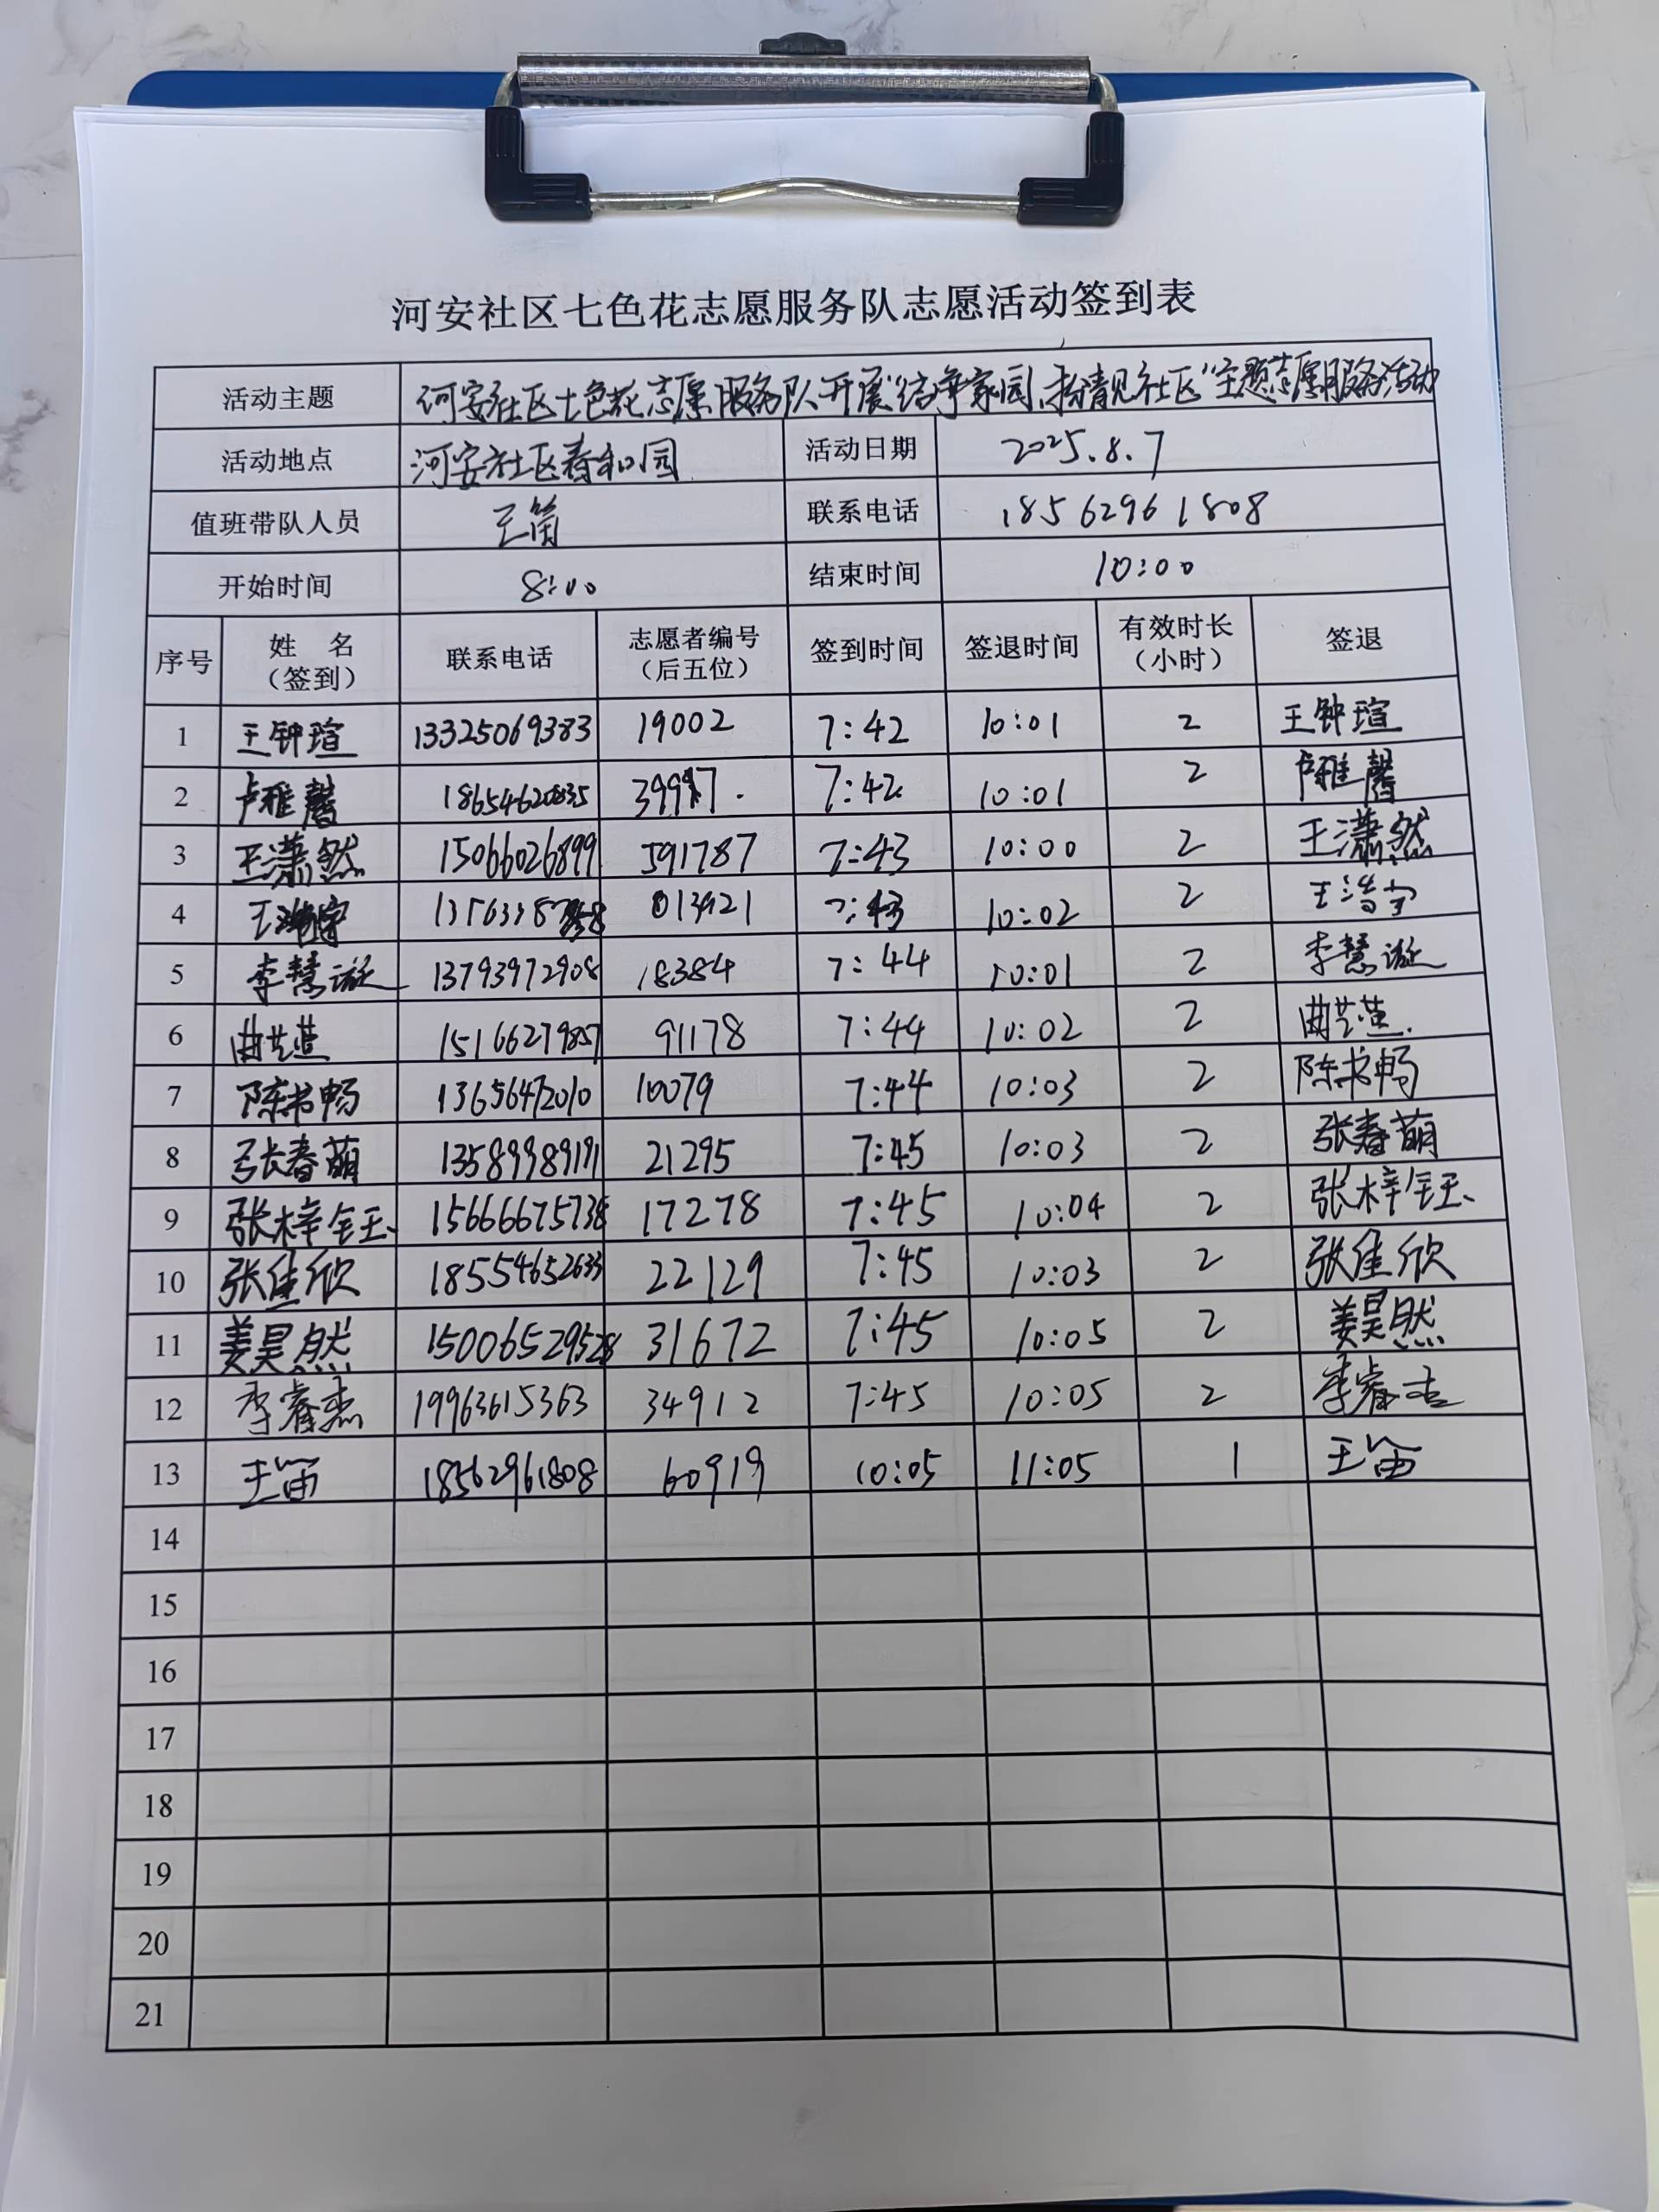 河安社区七色花志愿服务队志愿活动签到表
活动主题 河安社区七色花志愿服务队开展"洁净家园,扮靓社区"主题志愿服务活动
活动地点 河安社区春和园 活动日期 2025.8.7
值班带队人员 王笛 联系电话 18562961808
开始时间 8:00 结束时间 10:00
序号 姓 名 (签到) 联系电话 志愿者编号 (后五位) 签到时间 签退时间 有效时长 (小时) 签退
1 王钟瑄 13325069383 19002 7:42 10:01 2 王钟瑄
2 卢雅馨 18654620835 7:42 10:01 2 卢雅馨
3 王潇然 15066026899 591787 7:43 10:00 2 王潇然
4 013921 7:43 10:02 2
5 李慧漩 13793972908 18384 7:44 10:01 2 李慧漩
6 15166279857 91178 7:44 10:02 2
7 陈书畅 13656472010 10079 7:44 10:03 2 陈书畅
8 张春萌 13589989191 21295 7:45 10:03 2 张春萌
9 张梓钰 15666675738 17278 7:45 10:04 2 张梓钰
10 张佳欣 18554652633 22129 7:45 10:03 2 张佳欣
11 姜昊然 15006529528 31672 7:45 10:05 2 姜昊然
12 李睿杰 19963615363 34912 7:45 10:05 2 李睿杰
13 王笛 18562961808 60919 10:05 11:05 1 王笛
14
15
16
17
18
19
20
21